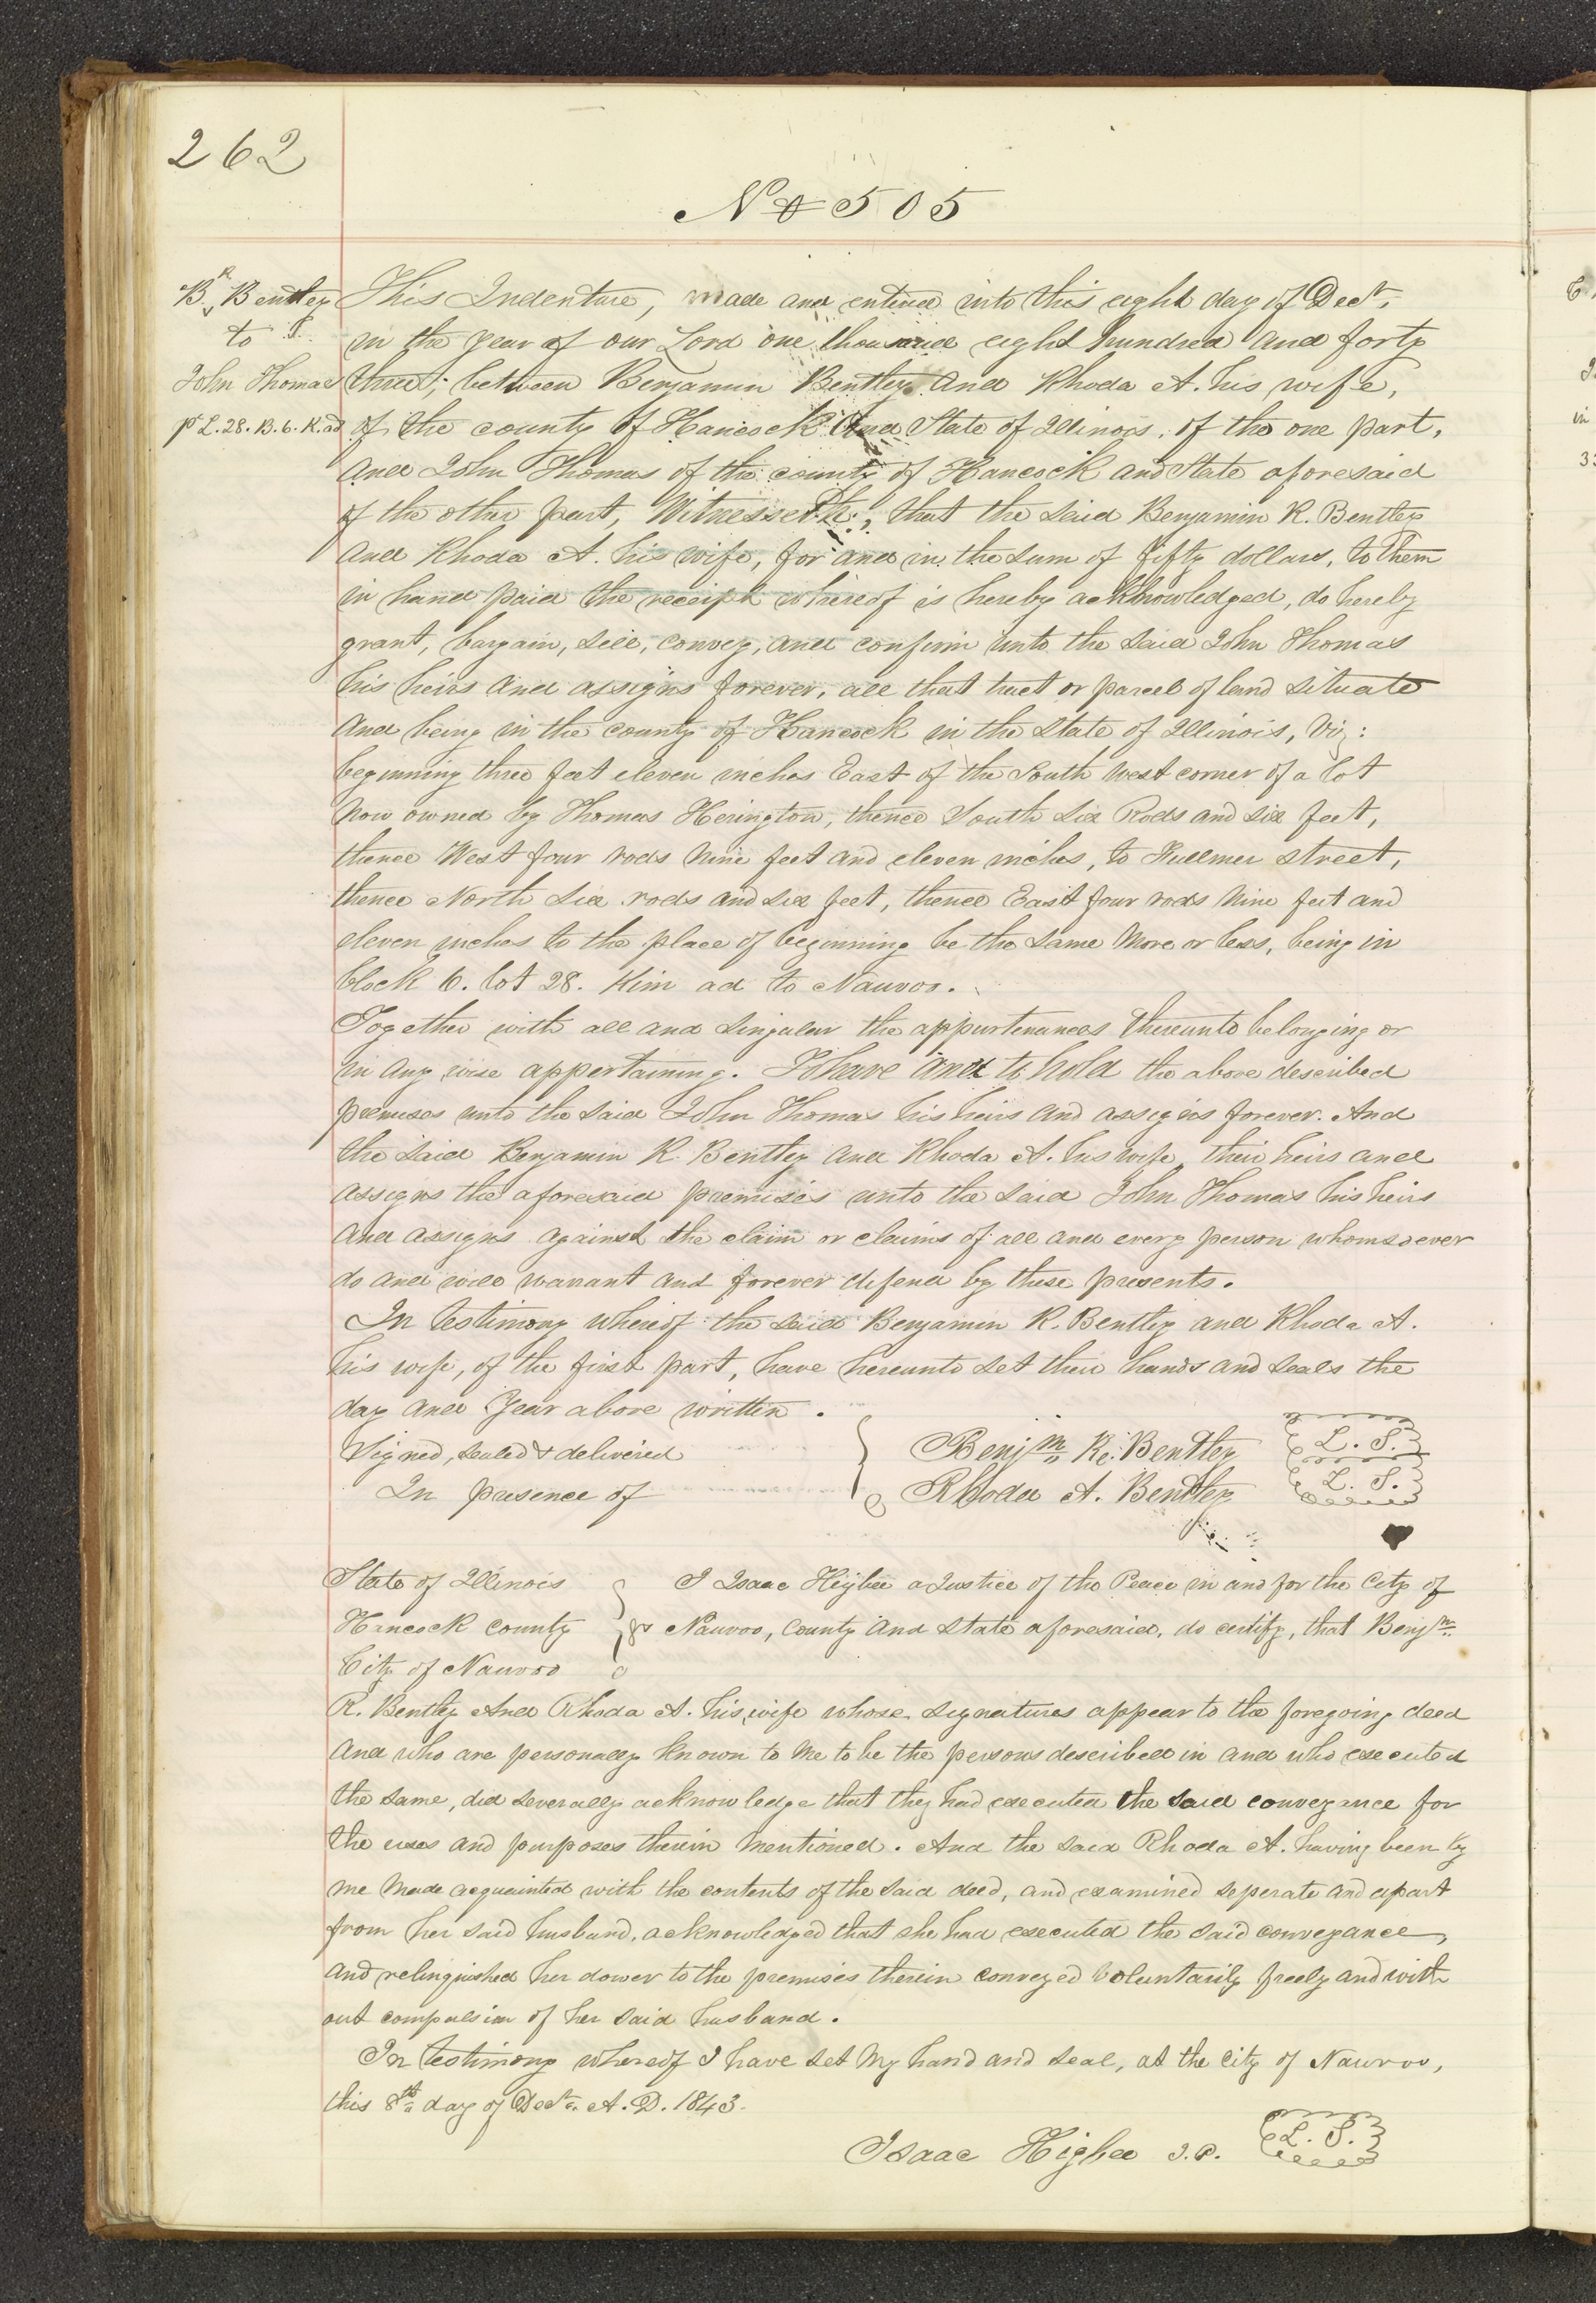 262
No 505
B. R. Bentley
to
John Thomas
pt L. 28. B. 6. K. ad
This Indenture, made and entered into this eight day of Decr.
in the year of our Lord one thousand eight hundred and forty
three; between Benjamin Bentley and Rhoda A. his wife,
of the county of Hancock and State of Illinois, of the one part,
and John Thomas of the county of Hancock and State aforesaid
of the other part, Witnesseth; that the said Benjamin R. Bentley
and Rhoda A. his wife, for and in the sum of fifty dollars, to them
in hand paid the receipt whereof is hereby acknowledged, do hereby
grant, bargain, sell, convey, and confirm unto the said John Thomas
his heirs and assigns forever, all that tract or parcel of land situate
and being in the county of Hancock in the State of Illinois, Viz:
beginning three feet eleven inches East of the South West corner of a lot
now owned by Thomas Herington, thence South Six Rods and six feet,
thence West four rods nine feet and eleven inches, to Fullmer street,
thence North six rods and six feet, thence East four rods nine feet and
eleven inches to the place of beginning be the same more or less, being in
block 6. lot 28. Kim ad to Nauvoo.
Together with all and singular the appurtenances thereunto belonging or
in any wise appertaining. To have and to hold the above described
premises unto the said John Thomas his heirs and assigns forever. And
the said Benjamin R. Bentley and Rhoda A. his wife, their heirs and
assigns the aforesaid premises unto the said John Thomas his heirs
and assigns against the claim or claims of all and every person whomsoever
do and will warrant and forever defend by these presents.
In testimony whereof the said Benjamin R. Bentley and Rhoda A.
his wife, of the first part, have hereunto set their hands and seals the
day and Year above written.
Signed, sealed & delivered
In presence of
Benjm. R. Bentley L. S.
Rhoda A. Bentley L. S.
State of Illinois
Hancock county ss
City of Nauvoo
I Isaac Higbee a Justice of the Peace in and for the City of
Nauvoo, County and State aforesaid, do certify, that Benjm.
R. Bentley and Rhoda A. his wife whose signatures appear to the foregoing deed
and who are personally known to me to be the persons described in and who executed
the same, did severally acknowledge that they had executed the said conveyance for
the uses and purposes therein mentioned. And the said Rhoda A. having been by
me made acquainted with the contents of the said deed, and examined seperate and apart
from her said husband, acknowledged that she had executed the said conveyance,
and relinquished her dower to the premises therein conveyed voluntarily freely and with
out compulsion of her said husband.
In testimony whereof I have set my hand and seal, at the City of Nauvoo,
this 8th day of Decr. A. D. 1843.
Isaac Higbee J. P. L. S.